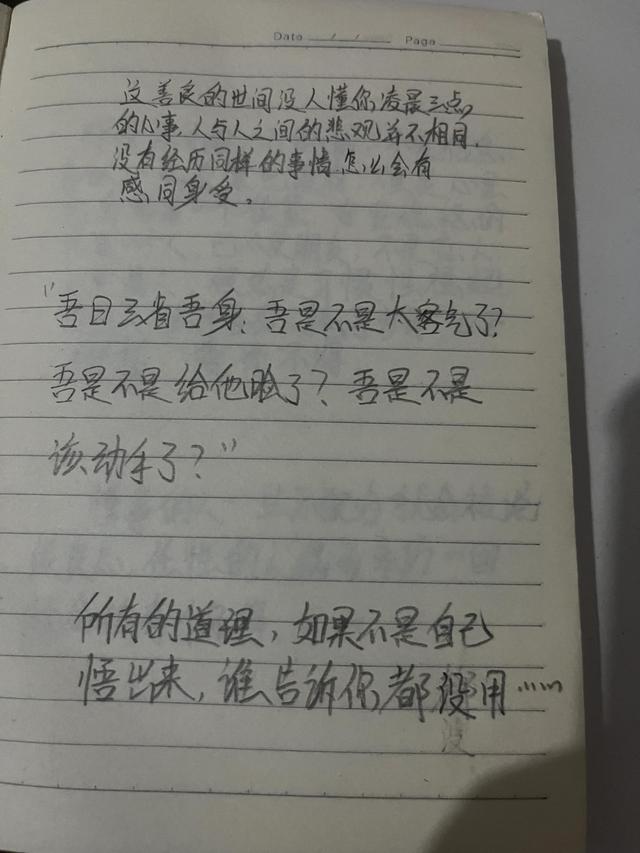 Date / / Page
这善良的世间没人懂你凌晨三点,
的心事,人与人之间的悲观并不相同.
没有经历同样的事情,怎么会有
感同身受。
"吾日三省吾身:吾是不是太客气了?
吾是不是给他脸了?吾是不是
该动手了?"
所有的道理,如果不是自己
悟出来,谁告诉你都没用……
没